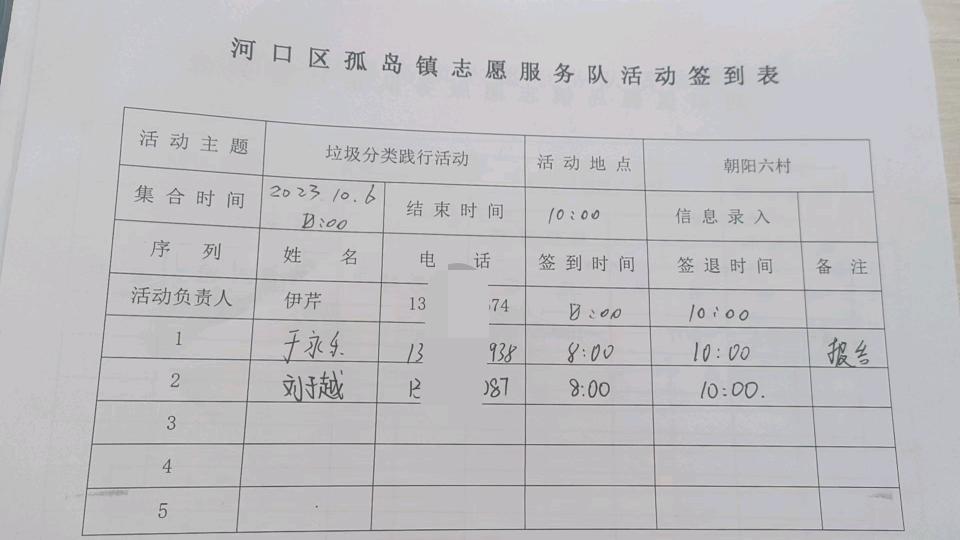 河口区孤岛镇志愿服务队活动签到表
活动主题 垃圾分类践行活动 活动地点 朝阳六村
集合时间 2023.10.6 8:00 结束时间 10:00 信息录入
序列 姓名 电话 签到时间 签退时间 备注
活动负责人 伊芹 13 574 8:00 10:00
1 于永乐 13 938 8:00 10:00
2 刘于越 13 087 8:00 10:00.
3
4
5